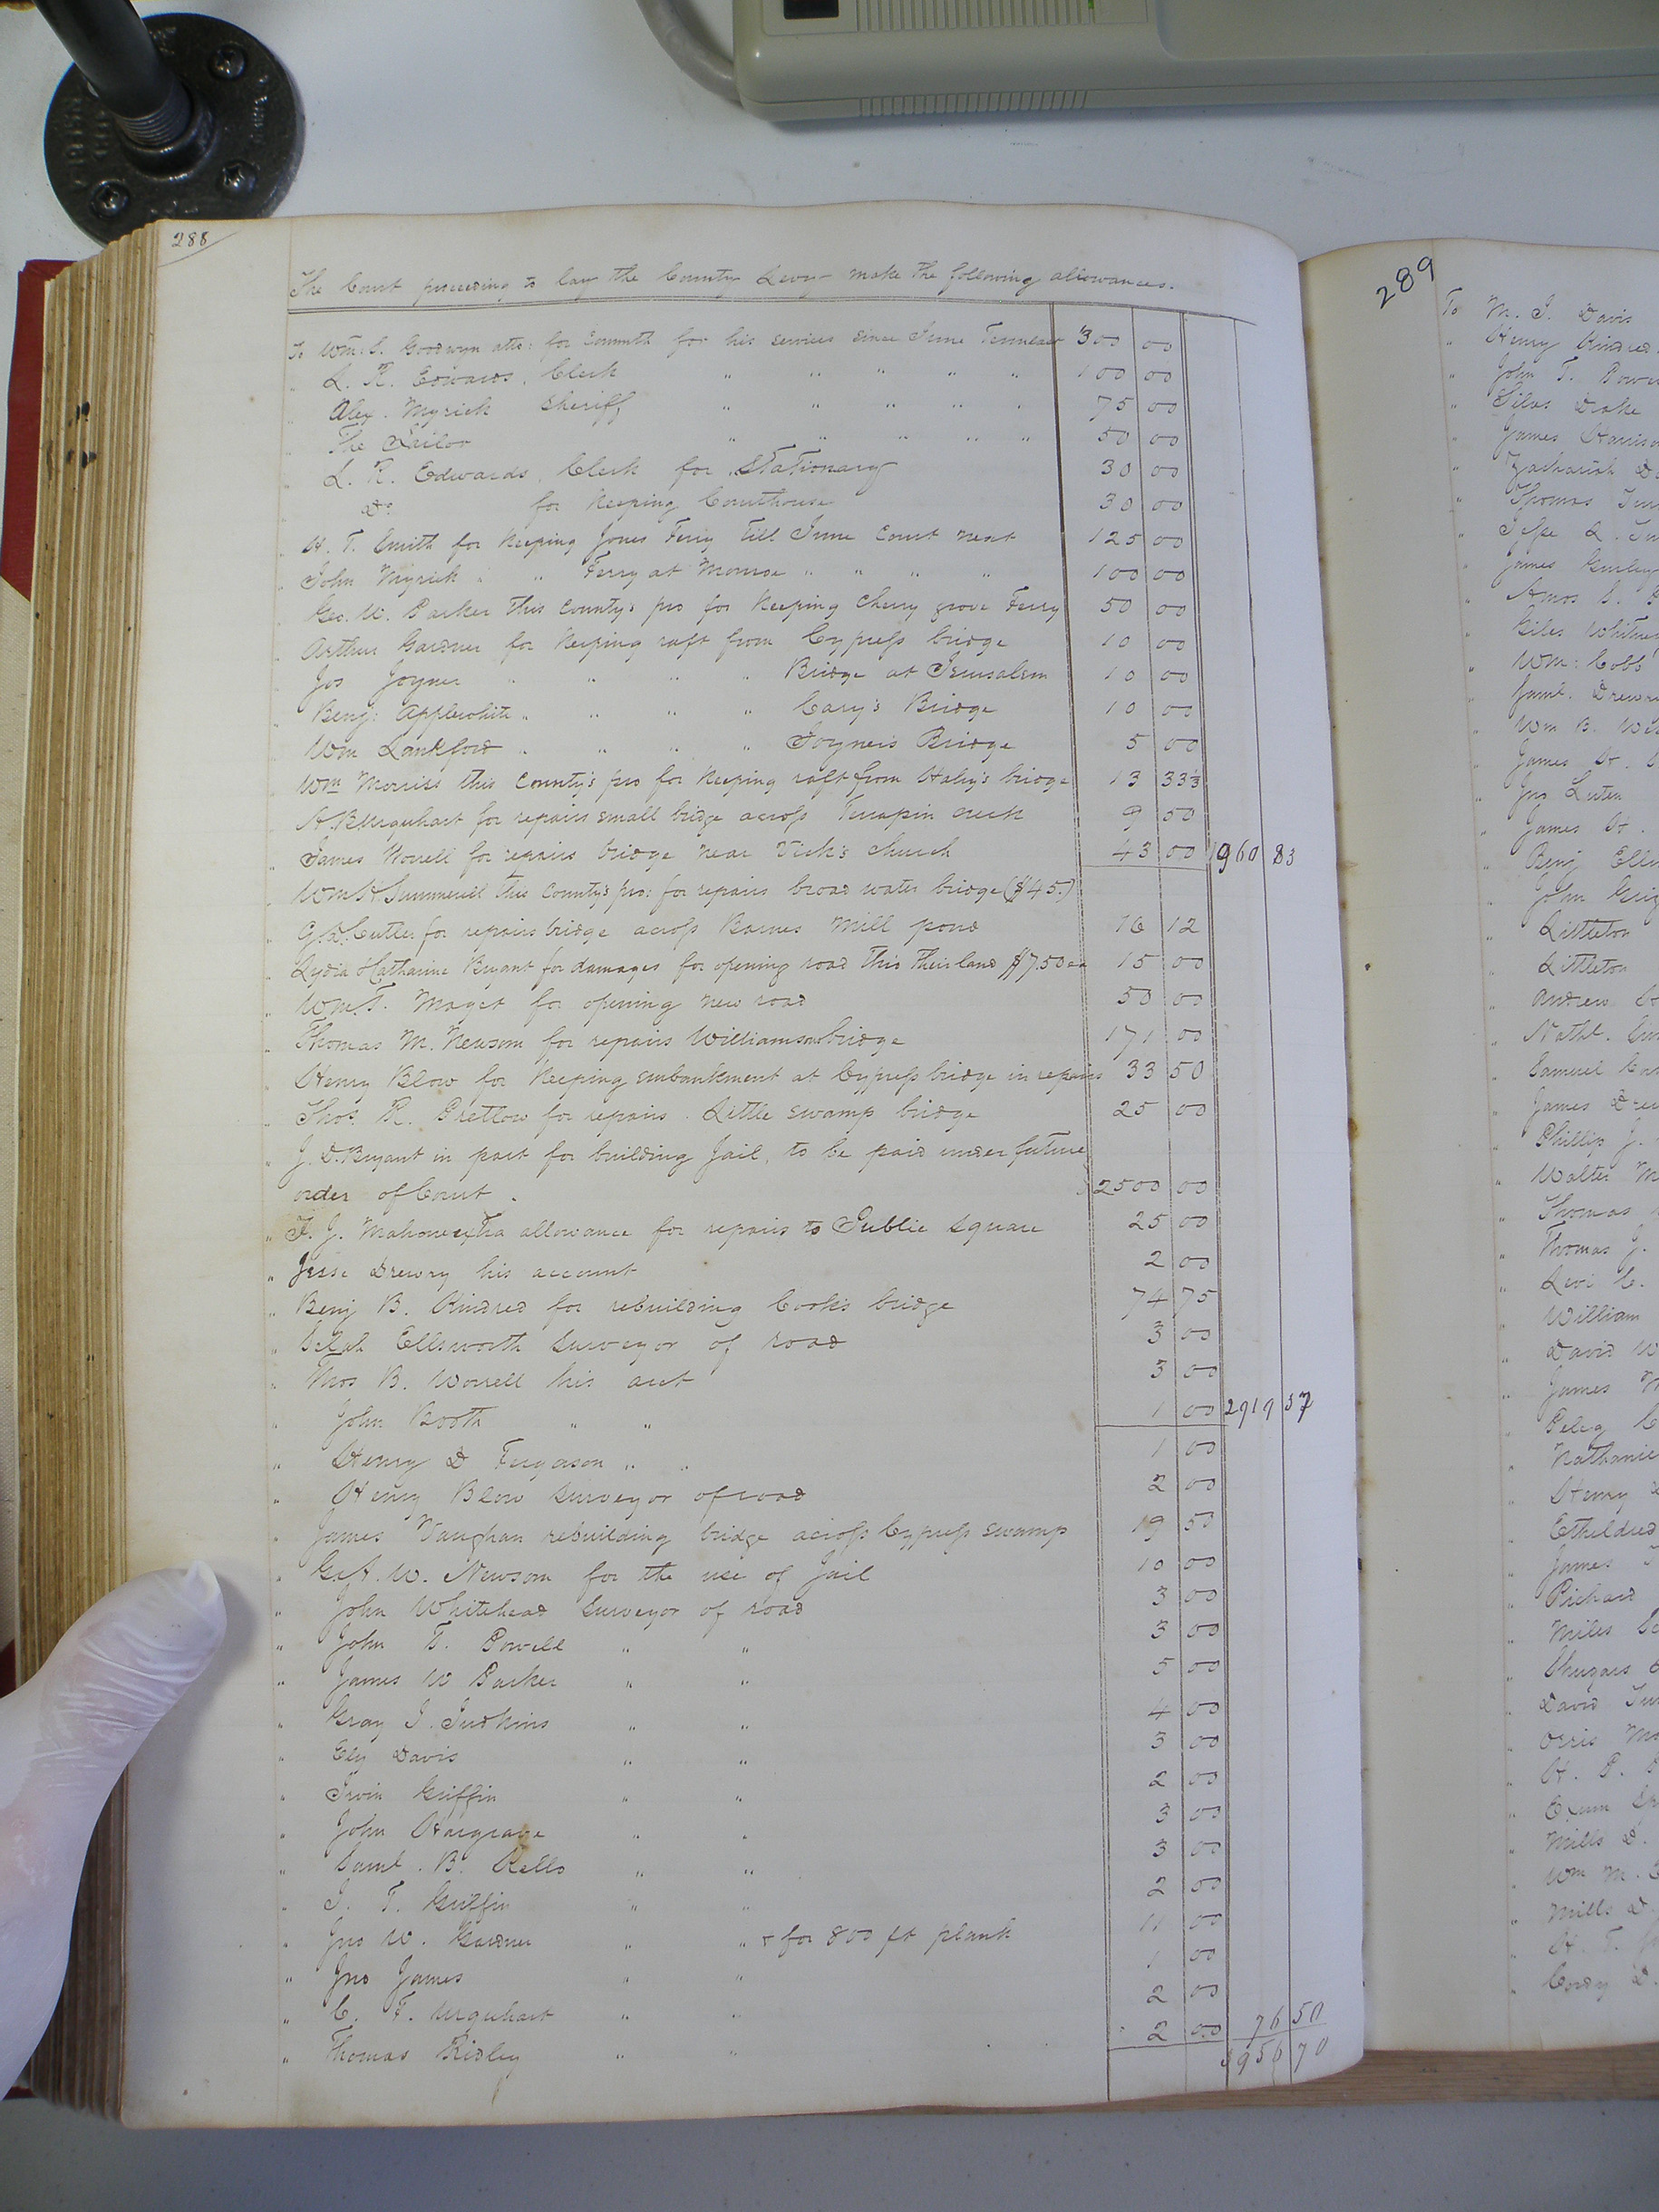 288
The Court proceeding to lay the County Levy make the following allowances.
To Wm: S. Goodwyn atto: for Commth for his services since June Term last 300 00
" L. R. Edwards, Clerk " " " " " 100 00
" Alex. Myrick Sheriff " " " " " 75 00
" The Jailor " " " " " 50 00
" L. R. Edwards, Clerk for Stationary 30 00
" Do. for Keeping Courthouse 30 00
" H. T. Smith for Keeping Jones Ferry till June Court next 125 00
" John Myrick " " Ferry at Monroe " " " " 100 00
" Geo. W. Parker this County's pro for Keeping Cherry grove Ferry 50 00
" Arthur Gardner for Keeping raft from Cypress bridge 10 00
" Jos Joyner " " " " Bridge at Jerusalem 10 00
" Benj: Applewhite " " " " Cary's Bridge 10 00
" Wm Lankford " " " " Joyner's Bridge 5 00
" Wm Morriss this County's pro for Keeping raft from Haley's bridge 13 33⅓
" A. B. Urquhart for repairs small bridge across Terrapin creek 9 50
" James Worrell for repairs bridge near Vick's church 43 00 960 83
" Wm H. Summerell this County's pro: for repairs broad water bridge ($45.)
" G. D. Cutler for repairs bridge across Barnes Mill pond 16 12
" Lydia & Catharine Bryant for damages for opening road thro their land $7.50 ea 15 00
" Wm T. Maget for opening new road 50 00
" Thomas M. Newsom for repairs Williamson bridge 171 00
" Henry Blow for Keeping embankment at Cypress bridge in repairs 33 50
" Thos. R. Pretlow for repairs Little swamp bridge 25 00
" J. D. Bryant in part for building Jail, to be paid under future
order of Court. 2500 00
" J. J. Mahone extra allowance for repairs to Public Square 25 00
" Jesse Drewry his account 2 00
" Benj B. Kindred for rebuilding Cook's bridge 74 75
" Selah Ellsworth Surveyor of road 3 00
" Thos B. Worrell his acct 3 00
" John Booth " " 1 00 2919 37
" Henry D Ferguson " " 1 00
" Henry Blow Surveyor of road 2 00
" James Vaughan rebuilding bridge across Cypress swamp 19 50
" G. A. W. Newsom for the use of Jail 10 00
" John Whitehead Surveyor of road 3 00
" John T. Powell " " 3 00
" James W Parker " " 5 00
" Gray J. Judkins " " 4 00
" Ely Davis " " 3 00
" Irvin Griffin " " 2 00
" John Hargrave " " 3 00
" Saml. B. Kello " " 3 00
" J. T. Griffin " " 2 00
" Jno W. Gardner " " & for 800 ft plank 11 00
" Jno James " " 1 00
" C. F. Urquhart " " 2 00
" Thomas Ridley " " 2 00 76 50
3956 70
289
To M. J. Davis
" Henry Kindred
" John T.
" Silas Drake
" James
" Zachariah
" Thomas
" Jesse L.
" James Gurley
" Amos
" Giles
" Wm: Cobb
" Saml. Drewry
" Wm B.
" James H.
" Jno Luter
" James H.
" Benj
" John
" Littleton
" Littleton
" Andrew
" Nathl.
" Samuel
" James
" Phillip J.
" Walter
" Thomas
" Thomas J.
" Levi C.
" William
" David
" James
" Peleg
" Nathaniel
" Henry
" Etheldred
" James
" Richard
" Miles
" David
" Orris
" H. P.
" Exum
" Mills D.
" Wm M.
" Mills D.
" H. T.
" Cordy D.